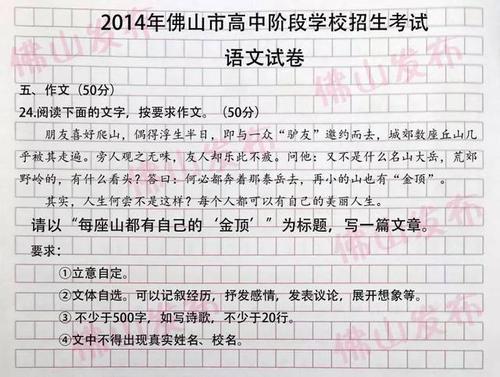 2014年佛山市高中阶段学校招生考试
语文试卷
五、作文（50分）
24.阅读下面的文字，按要求作文。（50分）
朋友喜好爬山，偶得浮生半日，即与一众“驴友”邀约而去，城郊数座丘山几
乎被其走遍。旁人观之无味，友人却乐此不疲。问他：又不是什么名山大岳，荒郊
野岭的，有什么看头？答曰：何必都奔着那泰岳去，再小的山也有“金顶”。
其实，人生何尝不是这样？每个人都可以有自己的美丽人生。
请以“每座山都有自己的‘金顶’”为标题，写一篇文章。
要求：
①立意自定。
②文体自选。可以记叙经历，抒发感情，发表议论，展开想象等。
③不少于500字，如写诗歌，不少于20行。
④文中不得出现真实姓名、校名。
佛山发布
佛山发布
佛山发布
佛山发布